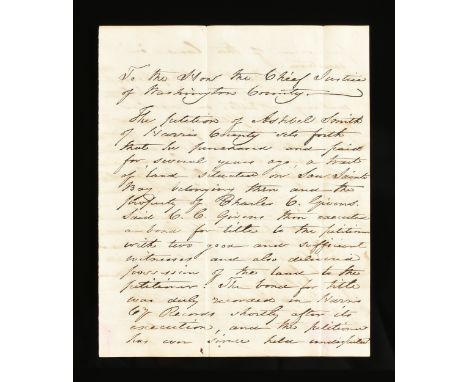 To the Hon the Chief Justice
of Washington County.
The petition of Ashbel Smith
of Harris County sets forth
that he purchased and paid
for several years ago, a tract
of land situated on San Jacinto
Bay belonging then and the
property of Charles C. Givens.
Said C. C. Givens then executed
a bond for title to the petitioner
with two good and sufficient
witnesses and also delivered
possession of the land to the
petitioner. The bond for title
was duly recorded in Harris
Cy Records shortly after its
execution, and the petitioner
has ever since held undisputed